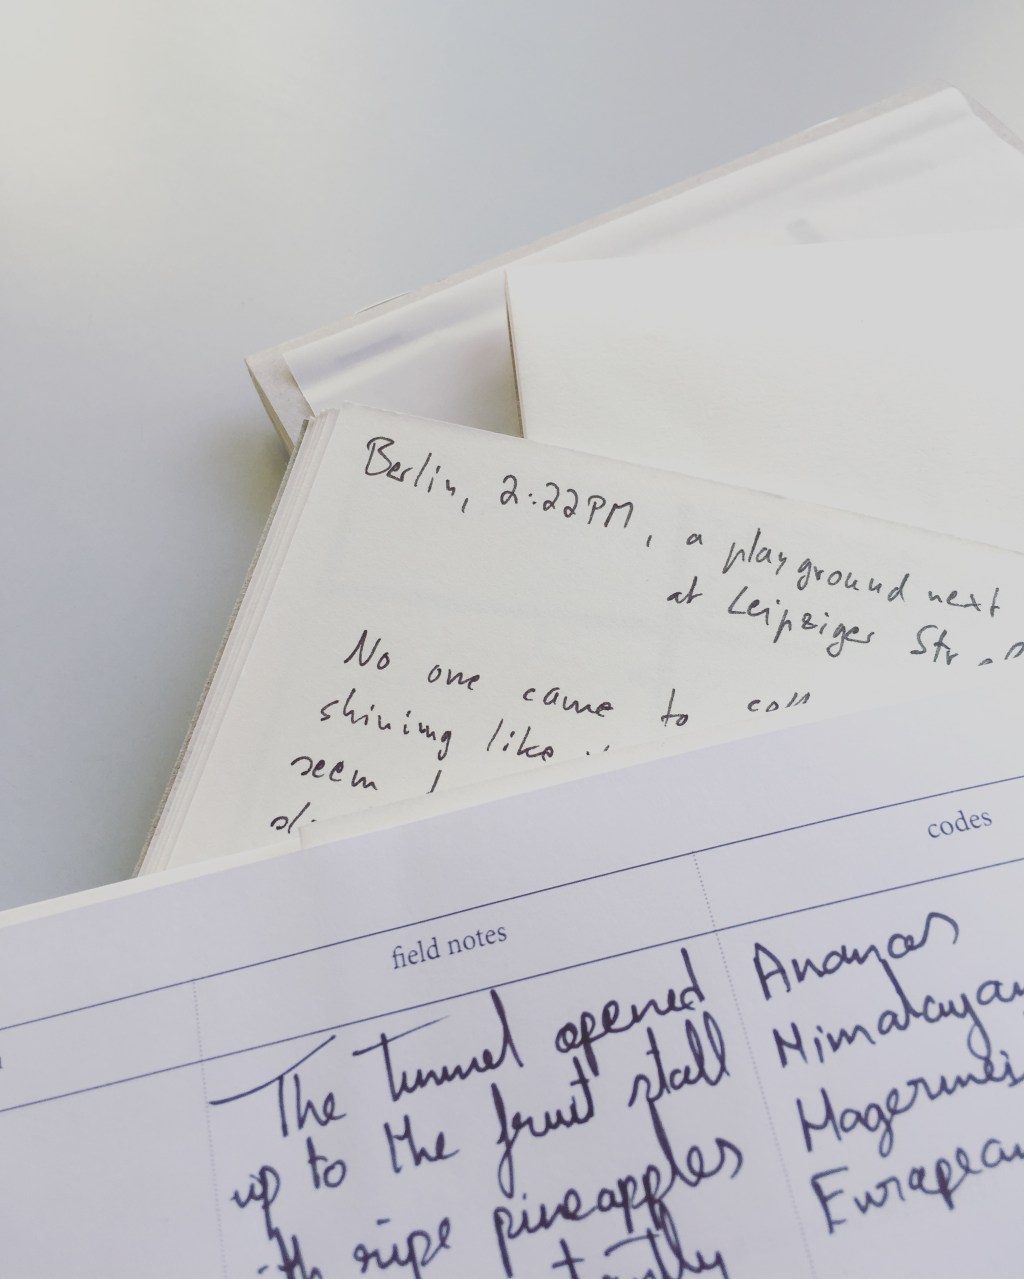 Berlin, 2:22PM, a playground next
at Leipziger Str.
No one came to
shining like
seem
field notes
codes
The tunnel opened
up to the fruit stall
ripe pineapples
Ananas
Himalayan
European